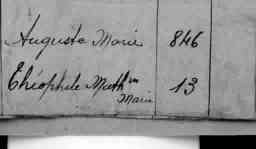 Auguste Marie 846
Théophile Math^in 13
Marie